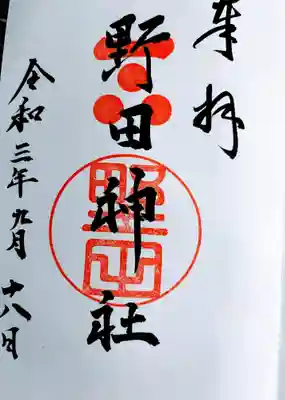 奉拝
野田神社
令和三年九月十八日